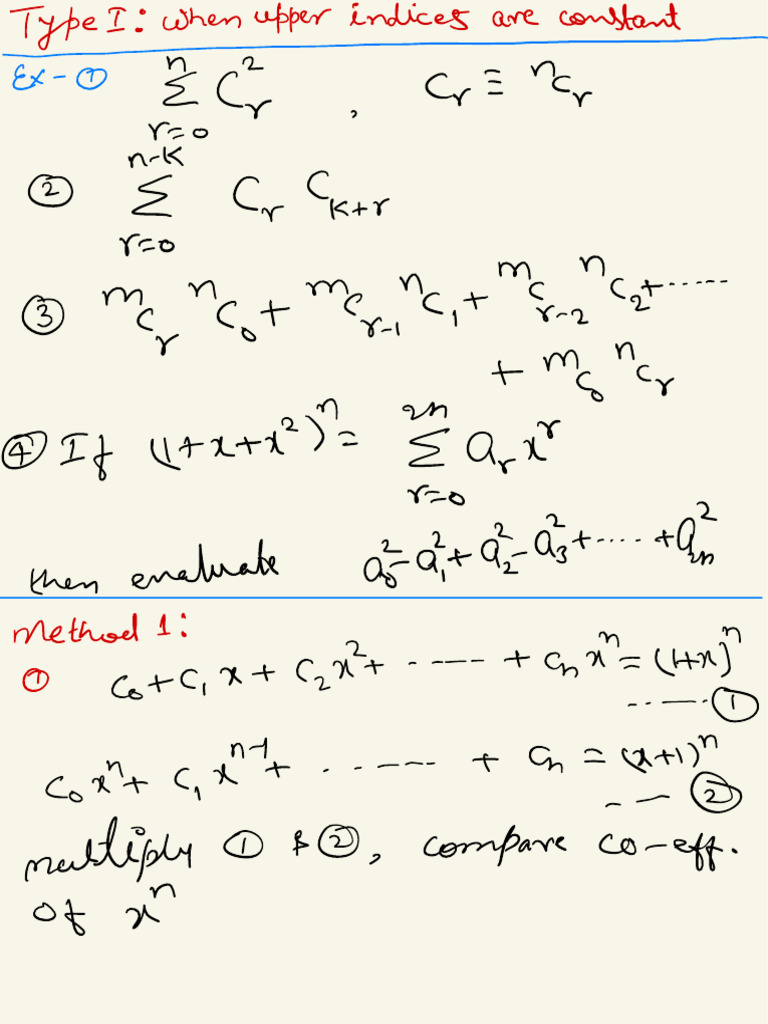 Type I: when upper indices are constant
Ex-① $\sum_{r=0}^{n} C_r^2$ , $C_r \equiv {}^nC_r$
② $\sum_{r=0}^{n-k} C_r \, C_{k+r}$
③ ${}^mC_r \, {}^nC_0 + {}^mC_{r-1} \, {}^nC_1 + {}^mC_{r-2} \, {}^nC_2 + \cdots\cdots$
$+ \, {}^mC_0 \, {}^nC_r$
④ If $(1+x+x^2)^n = \sum_{r=0}^{2n} a_r x^r$
then evaluate $a_0^2 - a_1^2 + a_2^2 - a_3^2 + \cdots\cdots + a_{2n}^2$
Method 1:
① $C_0 + C_1 x + C_2 x^2 + \cdots\cdots + C_n x^n = (1+x)^n$
$\cdots\cdots$ ①
$C_0 x^n + C_1 x^{n-1} + \cdots\cdots + C_n = (x+1)^n$
$\cdots$ ②
multiply ① & ②, compare co-eff.
of $x^n$